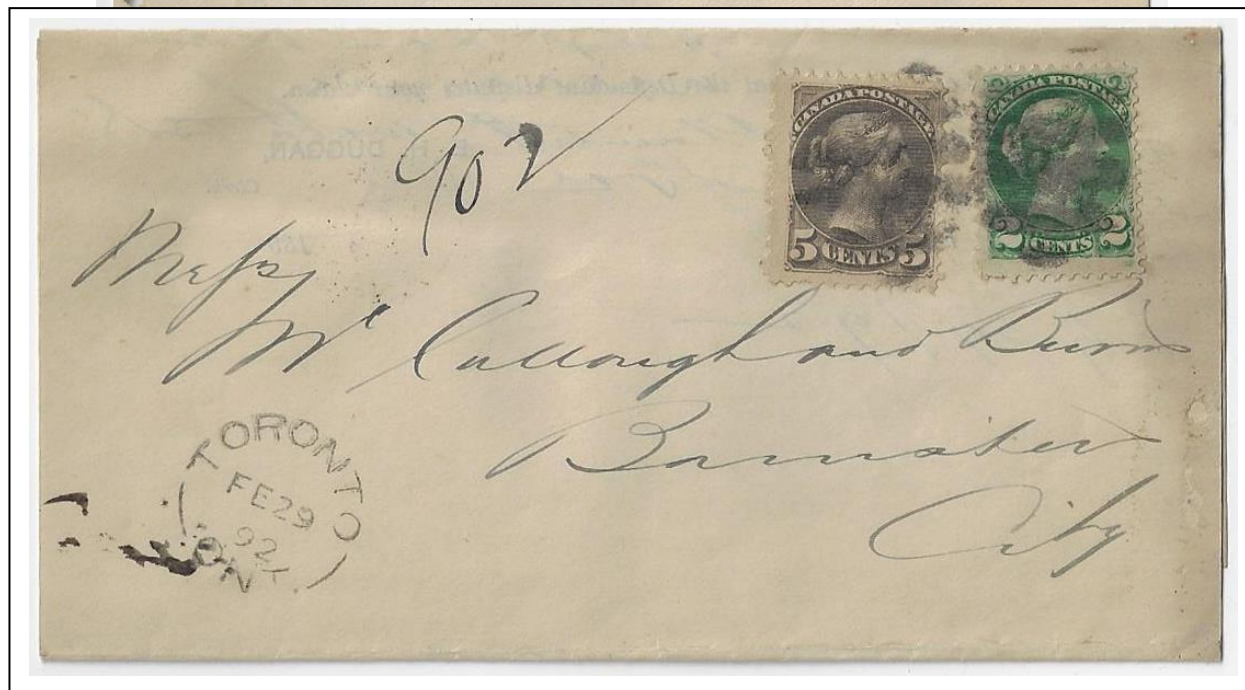 902
CANADA POSTAGE
5 CENTS 5
2 2
CANADA POSTAGE
2 CENTS 2
Messrs
Mc Cullough and Burns
Barristers
City
TORONTO
FE 29
92
ONT.
DUGGAN,